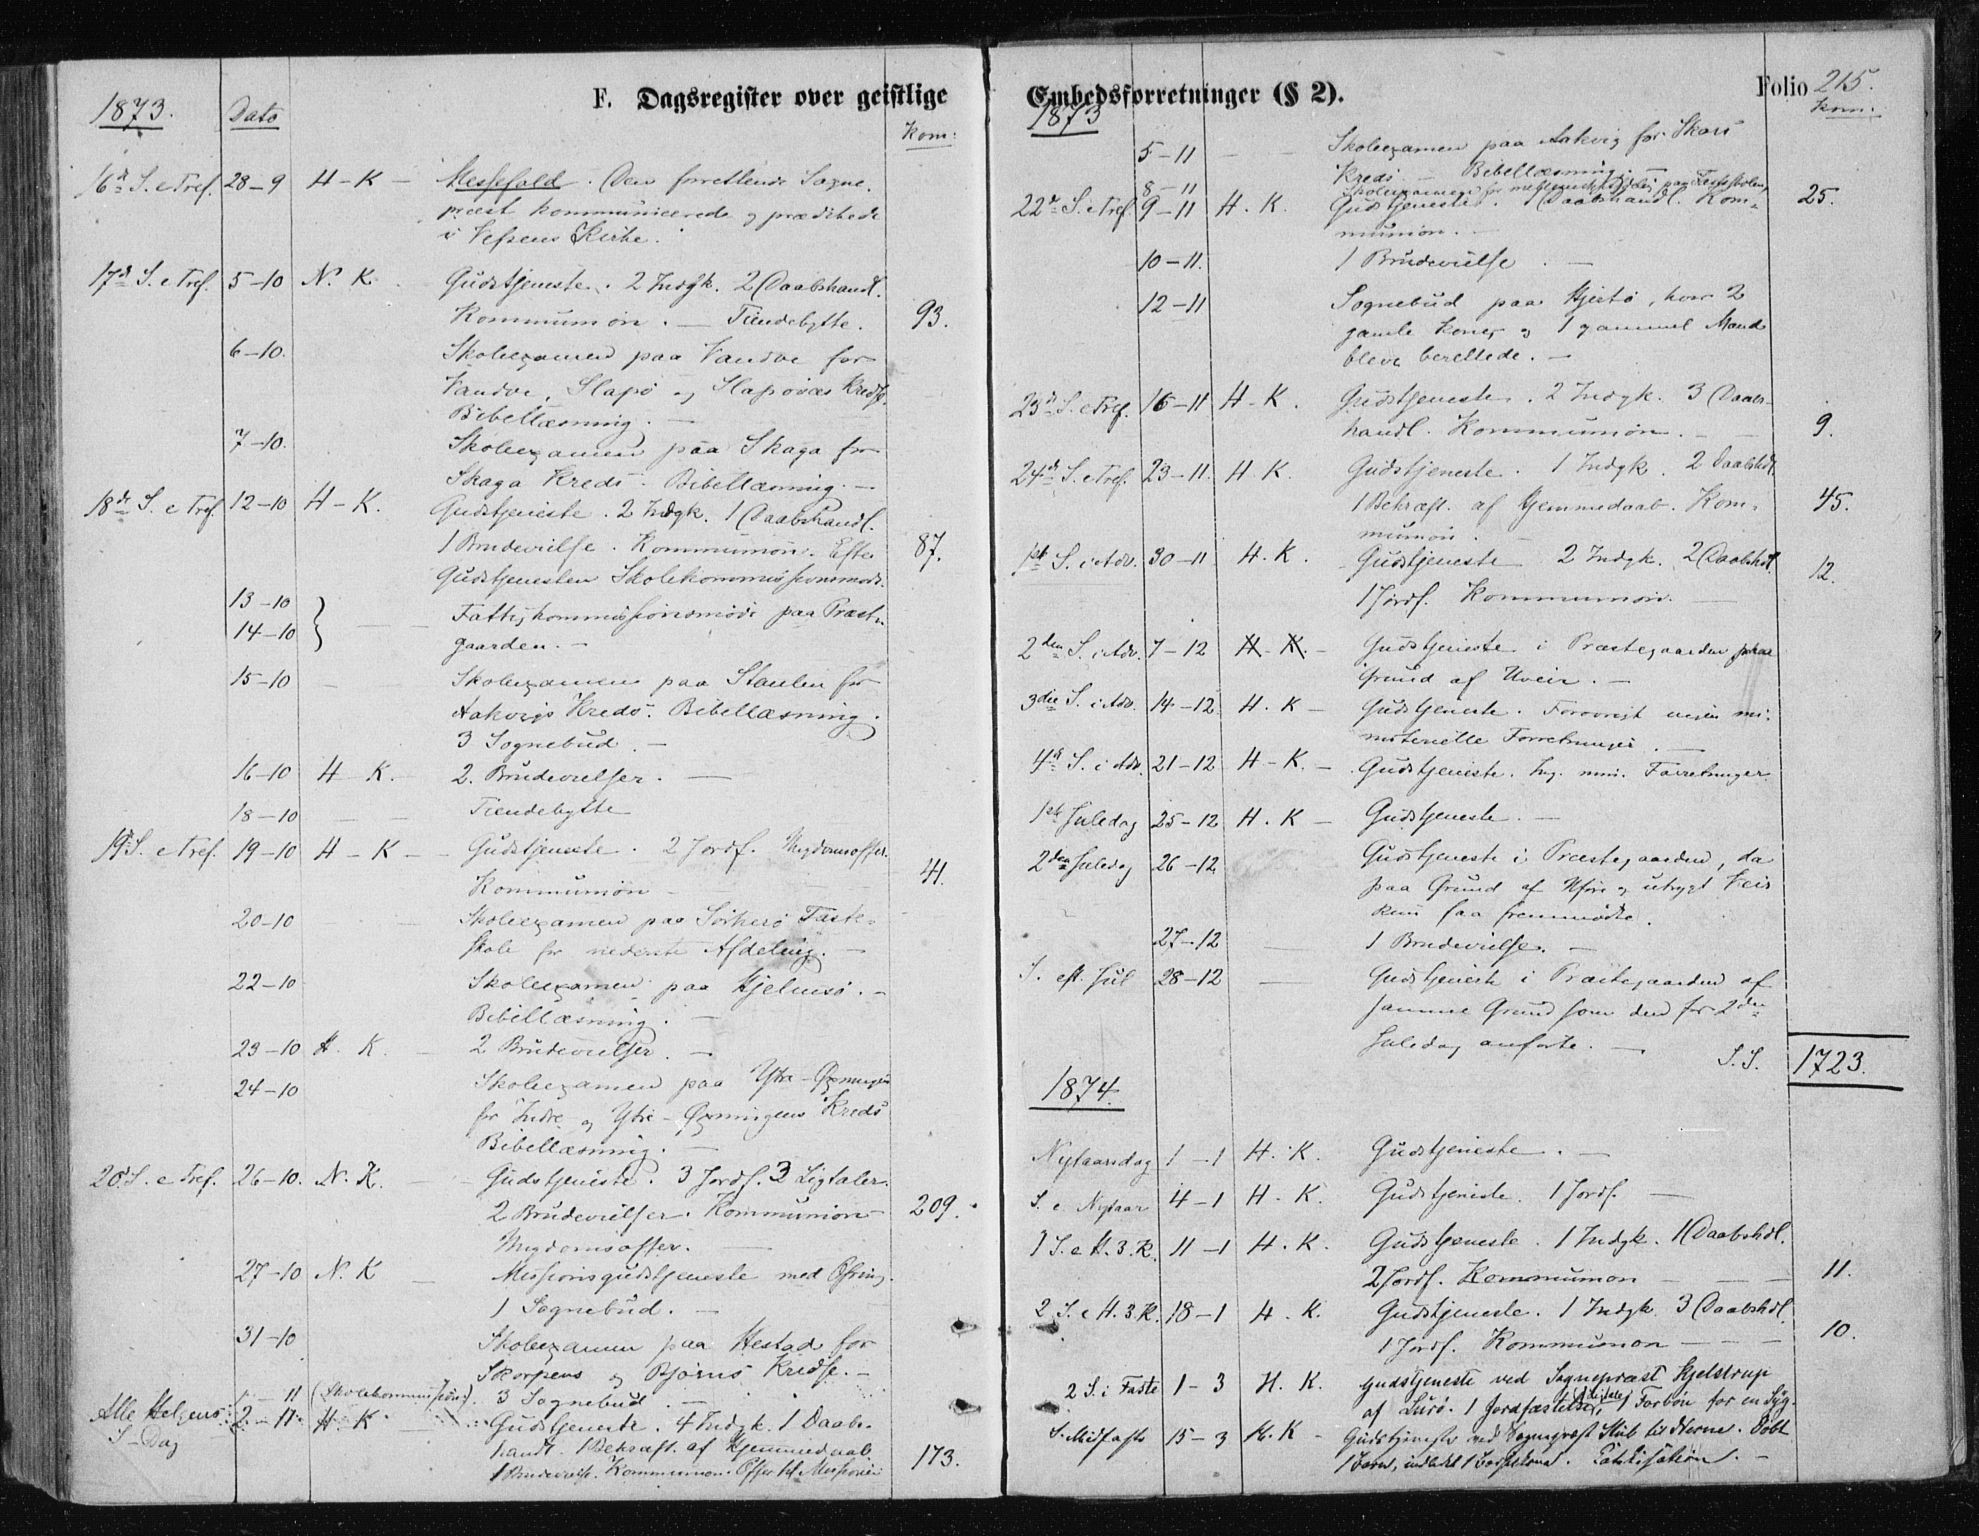 F. Dagsregister over geistlige
1873. Dato Kom:
16d S. e Tref. 28-9 H-K - Messefald. Den forrettende Sogne-
præst kommunicerede og prædikede
i Vefsens Kirke.
17d S. e Tref. 5-10 N. K. Gudstjeneste. 2 Indgk. 2 Daabshandl.
Kommunion. - Tiendebytte. 93.
6-10. Skoleexamen paa Vandve for
Vandve, Slapø og Slapøvæs Kredse.
Bibellæsning. -
7-10. Skoleexamen paa Skaga for
Skaga Kreds. Bibellæsning. -
18de S. e Tref. 12-10 H-K. Gudstjeneste. 2 Indgk. 1 Daabshandl.
1 Brudevielse. Kommunion. Efter 87.
Gudstjenesten Skolekommissionsmøde.
13-10
14-10 } Fattigkommissionsmøde paa Præste-
gaarden. -
15-10 Skoleexamen paa Staulen for
Aakvigs Kreds. Bibellæsning.
3 Sognebud. -
16-10 H-K. 2 Brudevielser. -
18-10 Tiendebytte
19d S. e Tref. 19-10 H-K - Gudstjeneste. 2 Jordf. Ungdomsoffer.
Kommunion - 41.
20-10 Skoleexamen paa Sørherø Faste-
skole for nederste Afdeling. -
22-10 Skoleexamen paa Hjelmsø. -
Bibellæsning. -
23-10 H. K. 2 Brudevielser. -
24-10 Skoleexamen paa Ytre-Øxningen
for Indre og Ytre-Øxningens Kreds
Bibellæsning. -
20d S. e Tref. 26-10. N. K. Gudstjeneste. 3 Jordf. 3 Ligtaler.
2 Brudevielser. Kommunion 209.
Ungdomsoffer.
27-10 N. K Missionsgudstjeneste med Ofring.
1 Sognebud. -
31-10 Skoleexamen paa Hestad for
Skorpens og Bjørns Kredse. -
1-11 (Skolekommission). 3 Sognebud. -
Alle Helgens 2-11 H. K Gudstjeneste. 4 Indgk. 1 Daabs-
S-Dag handl. 1 Bekræft. af Hjemmedaab
1 Brudevielse. Kommunion. Offer til Missionen 173.
Embedsforretninger (§ 2). Folio 215.
1873 Kom:
5-11 - - Skoleexamen paa Aakvig for Skars
Kreds - Bibellæsning. -
8-11 Skoleexamen for paa Fasteskolen,
22de S. e Tref. 9-11 H. K. Gudstjeneste. 1 Daabshandl. Kom- 25.
munion. -
10-11. 1 Brudevielse. -
12-11 Sognebud paa Hjertø, hvor 2
gamle Koner og 1 gammel Mand
bleve berettede. -
23d S. e Tref. 16-11 H-K. Gudstjeneste. 2 Indgk. 3 Daabs-
handl. Kommunion. - - 9.
24de S. e Tref. 23-11. H. K. Gudstjeneste. 1 Indgk. 2 Daabshdl
1 Bekræft. af Hjemmedaab. Kom- 45.
munion. -
1ste S. i Adv. 30-11 H. K. Gudstjeneste 2 Indgk. 2 Daabshdl. 12.
1 Jordf. Kommunion. -
2den S. i Adv. 7-12 H-K. - Gudstjeneste i Præstegaarden paa
Grund af Uveir. -
3die S. i Adv. 14-12 H. K - Gudstjeneste. Forøvrigt ingen mi-
nisterielle Forretninger. -
4d S. i Adv. 21-12 H-K. - Gudstjeneste. Ing. min. Forretninger
1ste Juledag 25-12 H. K - Gudstjeneste. -
2den Juledag 26-12 Gudstjeneste i Præstegaarden, da
paa Grund af Uføre og utrygt Veir
kun faa fremmødte.
27-12 1 Brudevielse. -
S. eft. Jul 28-12 Gudstjeneste i Præstegaarden af
samme Grund som den for 2den
Juledag anførte. -
S.S. 1723.
1874.
Nytaarsdag 1-1 H. K. Gudstjeneste. -
S. e. Nytaar 4-1 H. K. Gudstjeneste. 1 Jordf. -
1 S. e H. 3. K. 11-1 H. K. Gudstjeneste. 1 Indgk. 1 Daabshdl.
2 Jordf. Kommunion - - - 11.
2 S. e H. 3. K. 18-1 H. K. Gudstjeneste. 1 Indgk. 3 Daabshdl.
1 Jordf. Kommunion - - - 10.
2 S. i Faste 1-3 H. K. Gudstjeneste ved Sognepræst Hjelstrup
af Lurø. 1 Jordfæstelse, 1 Forbøn for en Syg.
S. Midfaste 15-3 H. K - Gudstjeneste ved Sognepræst Stub til Herne. Døbt
1 Barn, indledet 1 Barselkone.